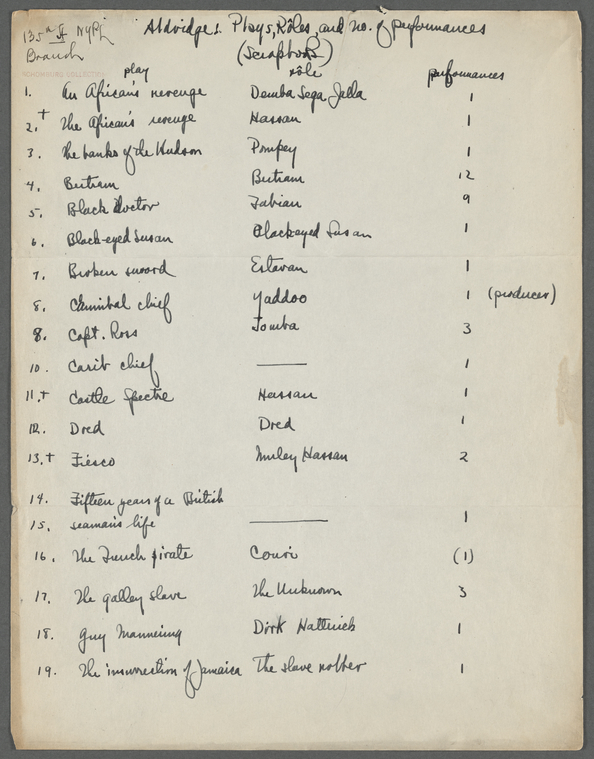 135th St NYPL Aldridge: Plays, Rôles, and no. of performances
Branch (Scrapbook)
SCHOMBURG COLLECTION
play rôle performances
1. An African's revenge Demba Sega Jalla 1
2.+ The African's revenge Hassan 1
3. The banks of the Hudson Pompey 1
4. Bertram Bertram 12
5. Black doctor Fabian 9
6. Black-eyed Susan Black-eyed Susan 1
7. Broken sword Estavan 1
8. Cannibal chief Yaddoo 1 (produces)
8. Capt. Ross Tomba 3
10. Carib chief —— 1
11.+ Castle Spectre Hassan 1
12. Dred Dred 1
13.+ Fiesco Muley Hassan 2
14. Fifteen years of a British
15. seaman's life —— 1
16. The French pirate Couri (1)
17. The galley slave The Unknown 3
18. Guy Mannering Dirk Hatteraick 1
19. The insurrection of Jamaica The slave robber 1